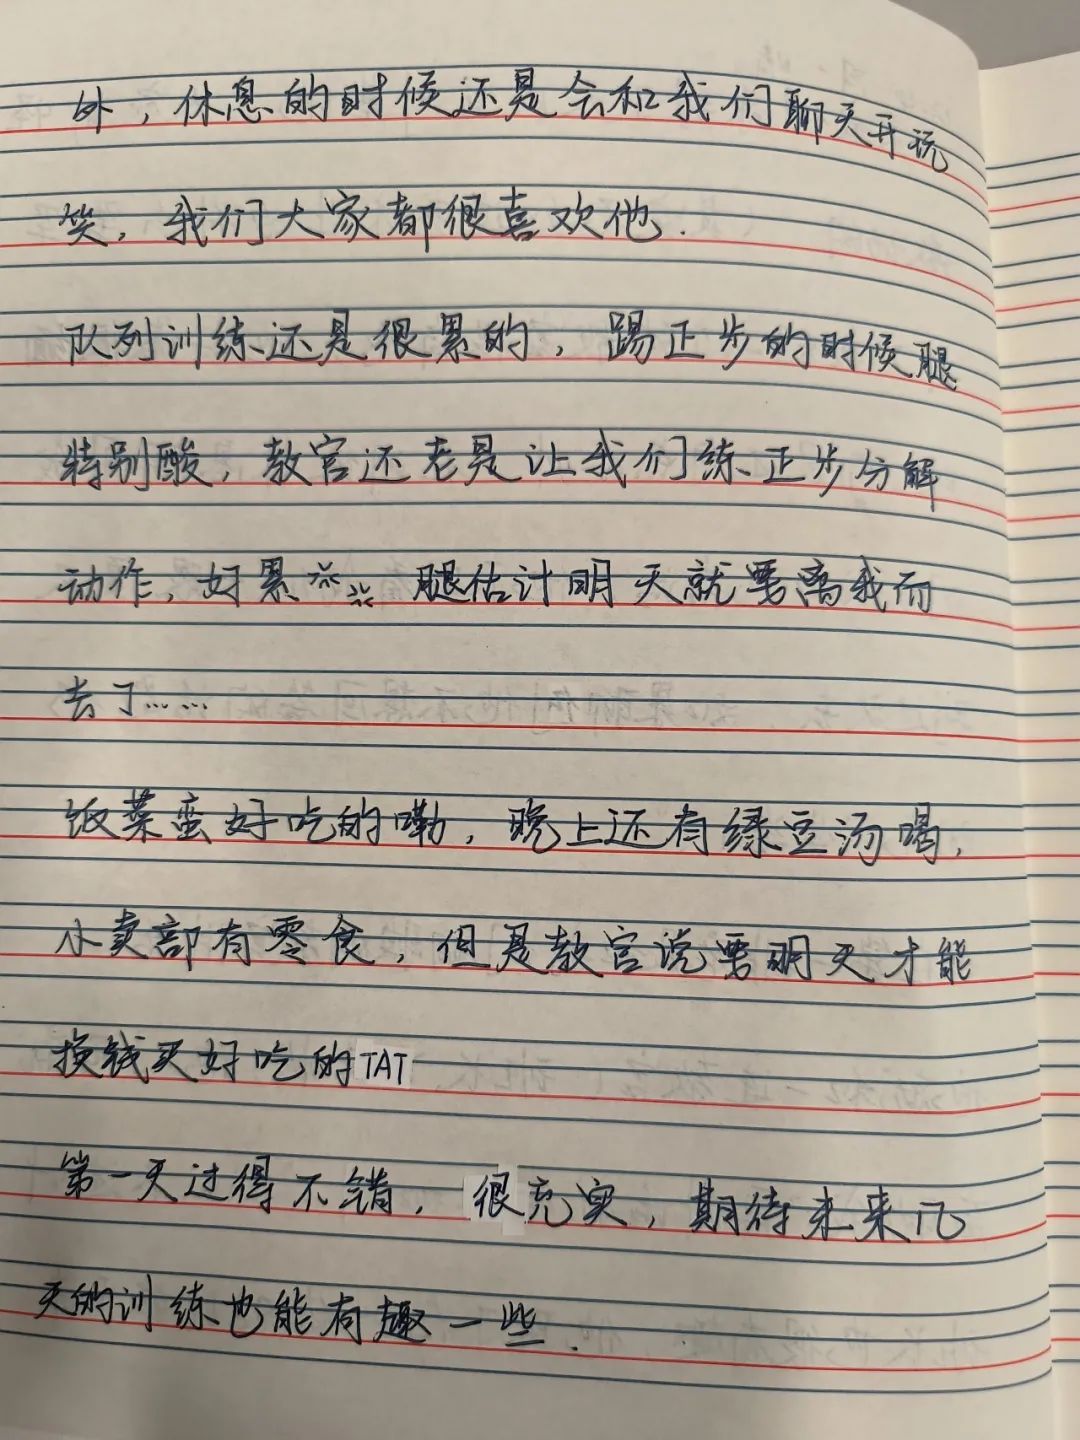 外，休息的时候还是会和我们聊天开玩
笑，我们大家都很喜欢他.
队列训练还是很累的，踢正步的时候腿
特别酸，教官还老是让我们练正步分解
动作，好累 腿估计明天就要离我而
去了……
饭菜蛮好吃的嘞，晚上还有绿豆汤喝，
小卖部有零食，但是教官说要明天才能
换钱买好吃的TAT
第一天过得不错，很充实，期待未来几
天的训练也能有趣一些.